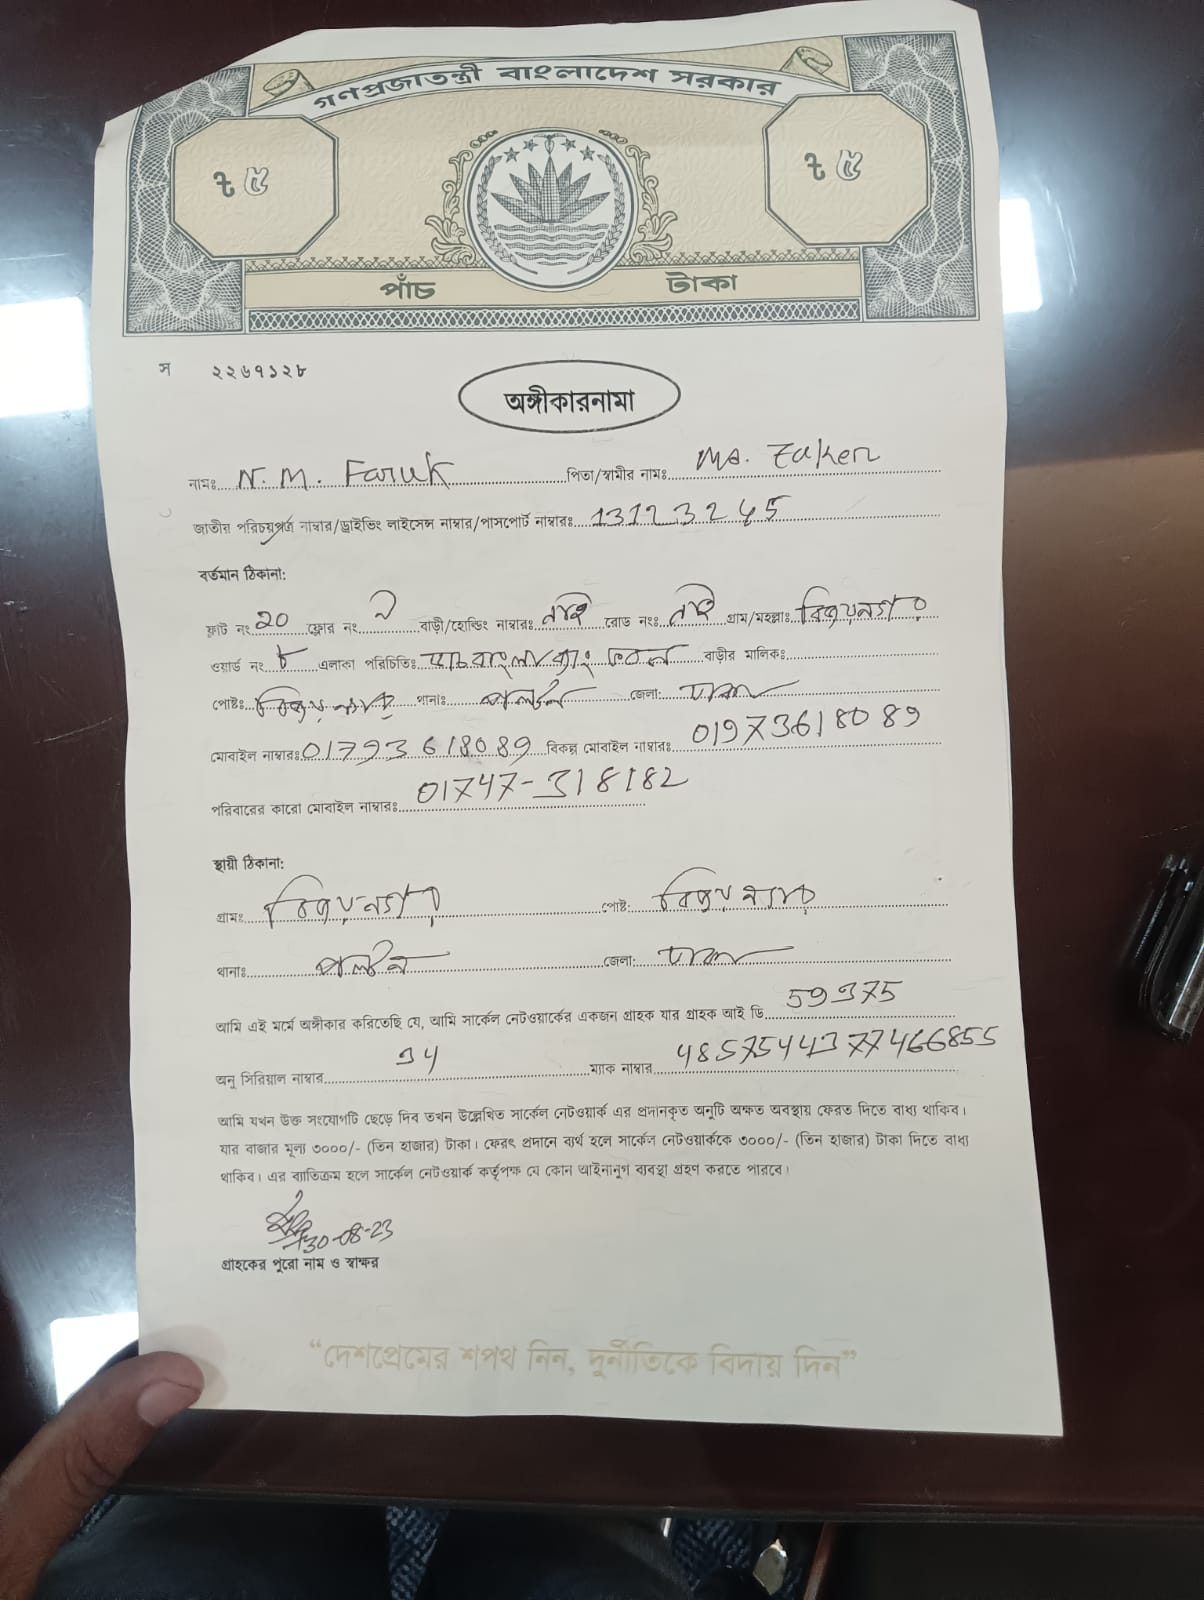 গণপ্রজাতন্ত্রী বাংলাদেশ সরকার
৳ ৫ ৳ ৫
পাঁচ টাকা
স ২২৬৭১২৮
অঙ্গীকারনামা
নামঃ N. M. Faruk পিতা/স্বামীর নামঃ Md. Zaker
জাতীয় পরিচয়পত্র নাম্বার/ড্রাইভিং লাইসেন্স নাম্বার/পাসপোর্ট নাম্বারঃ
বর্তমান ঠিকানা:
ফ্লাট নং 20 ফ্লোর নং বাড়ী/হোল্ডিং নাম্বারঃ নাই রোড নংঃ নাই গ্রাম/মহল্লাঃ বিজয়নগর
ওয়ার্ড নং ৮ এলাকা পরিচিতিঃ বাড়ীর মালিকঃ
পোষ্টঃ বিজয়নগর থানাঃ পল্টন জেলা: ঢাকা
মোবাইল নাম্বারঃ 01793618089 বিকল্প মোবাইল নাম্বারঃ 01973618089
পরিবারের কারো মোবাইল নাম্বারঃ 01747-318182
স্থায়ী ঠিকানা:
গ্রামঃ বিজয়নগর পোষ্ট: বিজয়নগর
থানাঃ পল্টন জেলা: ঢাকা
আমি এই মর্মে অঙ্গীকার করিতেছি যে, আমি সার্কেল নেটওয়ার্কের একজন গ্রাহক যার গ্রাহক আই ডি 59375
অনু সিরিয়াল নাম্বার ম্যাক নাম্বার
আমি যখন উক্ত সংযোগটি ছেড়ে দিব তখন উল্লেখিত সার্কেল নেটওয়ার্ক এর প্রদানকৃত অনুটি অক্ষত অবস্থায় ফেরত দিতে বাধ্য থাকিব।
যার বাজার মূল্য ৩০০০/- (তিন হাজার) টাকা। ফেরৎ প্রদানে ব্যর্থ হলে সার্কেল নেটওয়ার্ককে ৩০০০/- (তিন হাজার) টাকা দিতে বাধ্য
থাকিব। এর ব্যতিক্রম হলে সার্কেল নেটওয়ার্ক কর্তৃপক্ষ যে কোন আইনানুগ ব্যবস্থা গ্রহণ করতে পারবে।
30-08-23
গ্রাহকের পুরো নাম ও স্বাক্ষর
“দেশপ্রেমের শপথ নিন, দুর্নীতিকে বিদায় দিন”